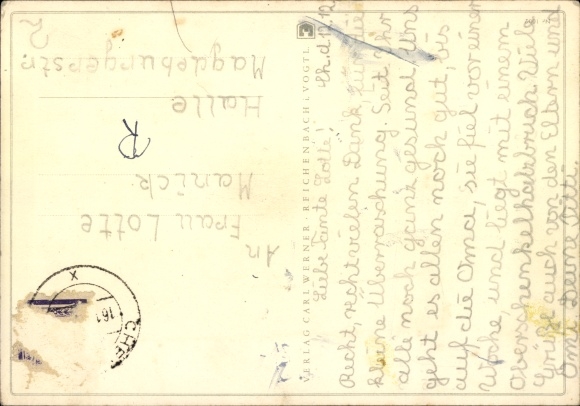 Ch. d. 12.12
Liebe Tante Lotte!
Recht, recht vielen Dank für die
kleine Überraschung. Seit Ihr
alle noch ganz gesund. Uns
geht es allen noch gut, bis
auf die Oma, sie fiel vor einer
Woche, und liegt mit einem
Oberschenkelhalsbruch. Viele
Grüße auch von den Eltern und
Omi Deine
VERLAG CARL WERNER · REICHENBACH I. VOGTL.
An
Frau Lotte
Manick
R
Halle
Magdeburgerstr.
CHE
161
X